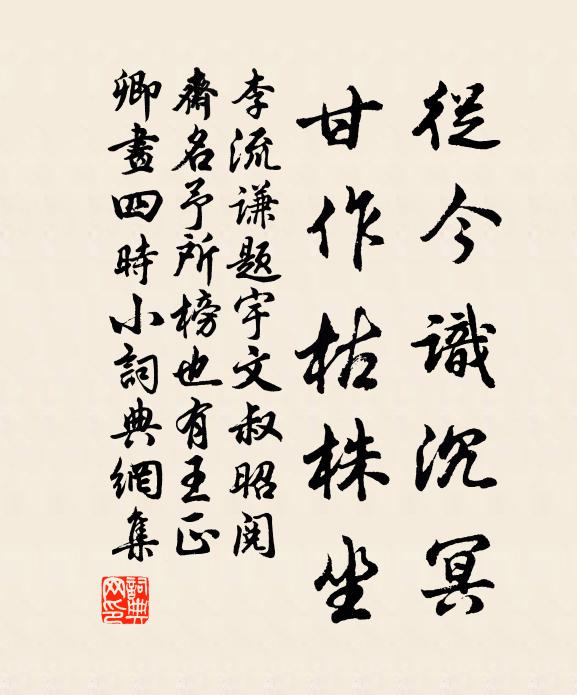 從今識沉冥
甘作枯株坐
李流谦题宇文叔昭阅
齋名予所榜也有王正
卿畫四時小詞典網集
詞典
网印